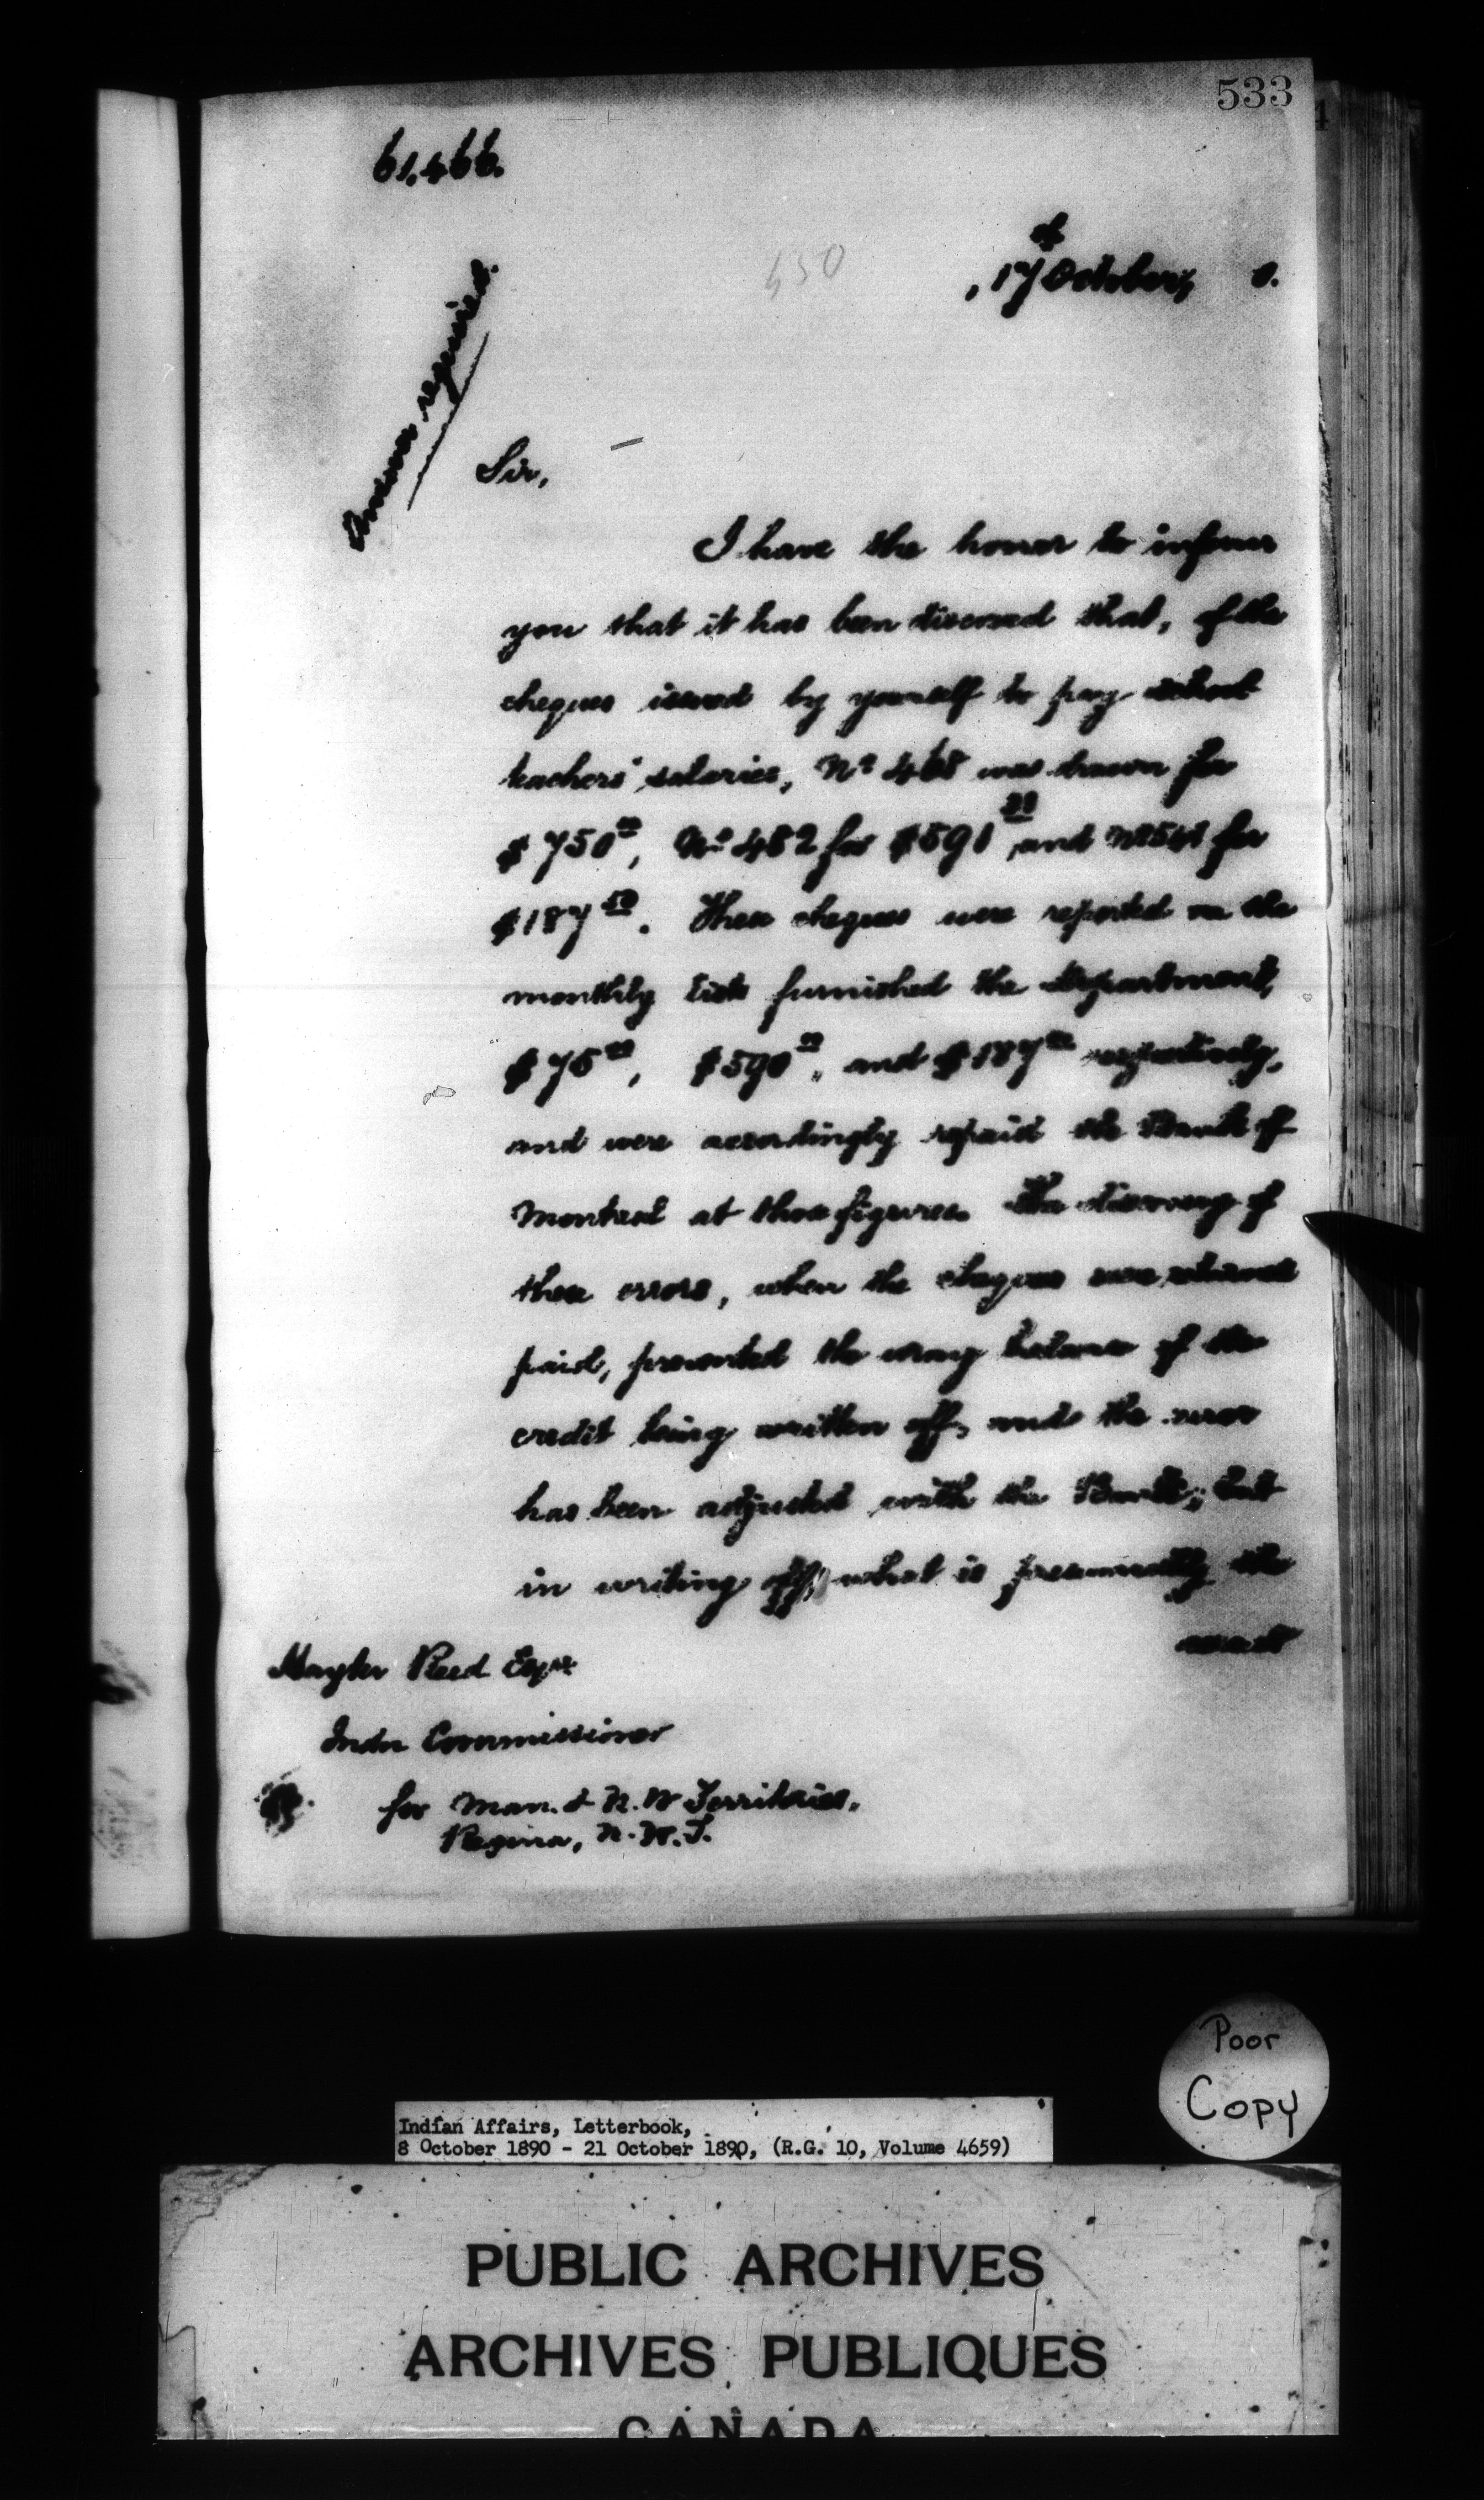 533
61,466.
17th October, 0.
550
Answer required.
Sir,
I have the honor to inform
you that it has been discovered that, of the
cheques issued by yourself to pay school
teachers' salaries, No 468 was drawn for
$750 00, No 482 for $591 and No 541 for
$187 50. These cheques were reported on the
monthly lists furnished the Department,
$75 00, $590 and $187 respectively,
and were accordingly repaid the Bank of
Montreal at those figures. The discovery of
these errors, when the cheques were returned
paid, prevented the wrong balance of the
credit being written off, and the error
has been adjusted with the Bank; but
in writing off, what is presumably the
exact
Hayter Reed Esqre
Indn Commissioner
for Man. & N. W Territories,
Regina, N. W. T.
Poor
Copy
Indian Affairs, Letterbook,
8 October 1890 - 21 October 1890, (R.G. 10, Volume 4659)
PUBLIC ARCHIVES
ARCHIVES PUBLIQUES
CANADA